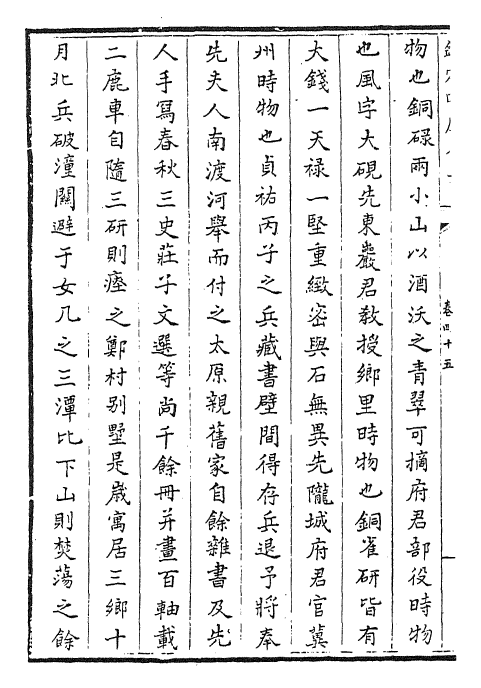 卷四十五
物也銅碌兩小山以酒沃之青翠可摘府君部役時物
也風字大硯先東巖君教授鄉里時物也銅雀研皆有
大錢一天禄一堅重緻密與石無異先隴城府君官冀
州時物也貞祐丙子之兵藏書壁間得存兵退予將奉
先夫人南渡河舉而付之太原親舊家自餘雜書及先
人手寫春秋三史莊子文選等尚千餘冊并畫百軸載
二鹿車自隨三研則瘞之鄭村别墅是歲寓居三鄉十
月北兵破潼關避于女几之三潭比下山則焚蕩之餘